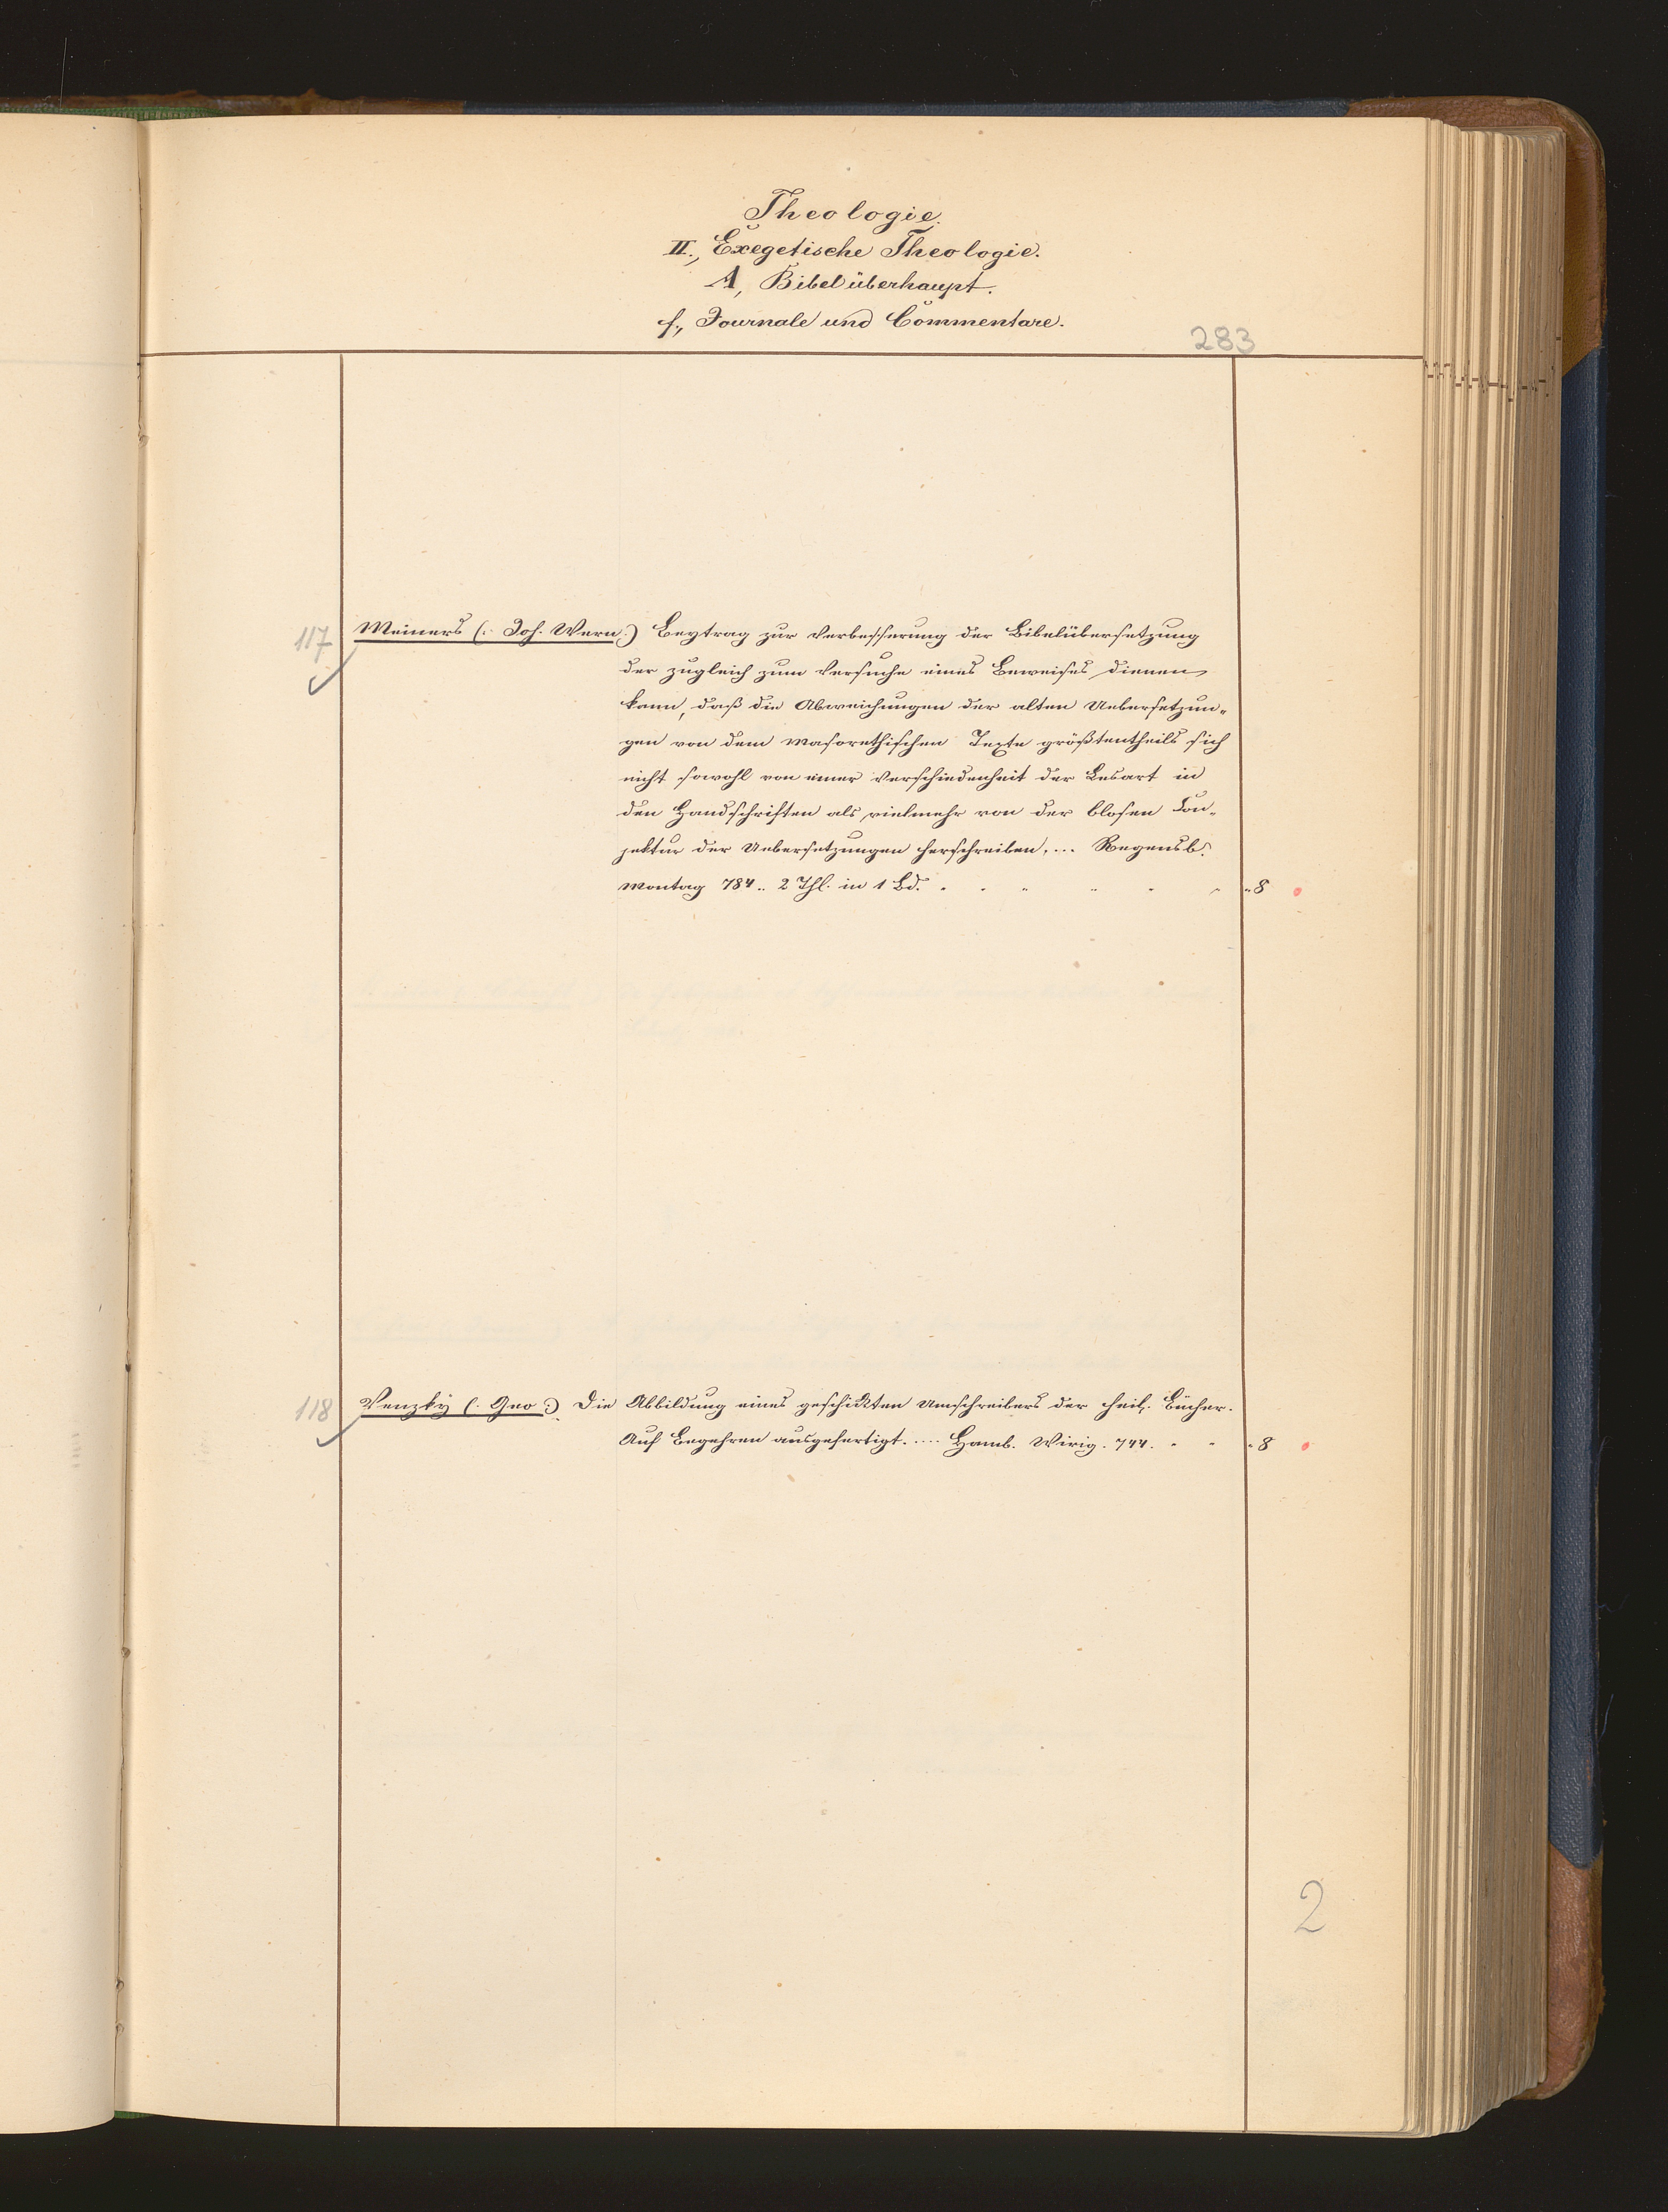 Theologie.
II., Exegetische Theologie.
A, Bibel überhaupt.
f., Journale und Commentare.
283
117 Meiners (: Joh. Wern:) Beytrag zur Verbesserung der Bibelübersetzung
der zugleich zum Versuche eines Beweises dienen
kann, daß die Abweichungen der alten Uebersetzun-
gen von dem masorethischen Texte größtentheils sich
nicht sowohl von einer Verschiedenheit der Lesart in
den Handschriften als vielmehr von der blosen Con-
jektur der Uebersetzungen herschreiben, ... Regensb.
Montag 784.. 2 Thl. in 1 Bd. 8
118 Venzky (: Geo:) Die Abbildung eines geschickten Umschreibers der heil. Bücher.
Auf Begehren ausgefertigt. .... Hamb. 744. 8
2